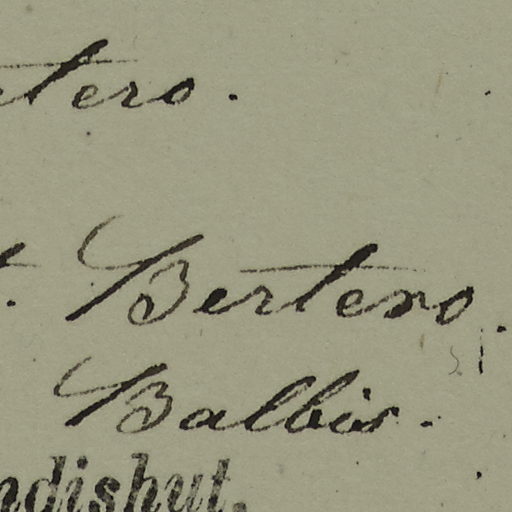 tero.
t. Bertero.
Balbis.
ndishut.